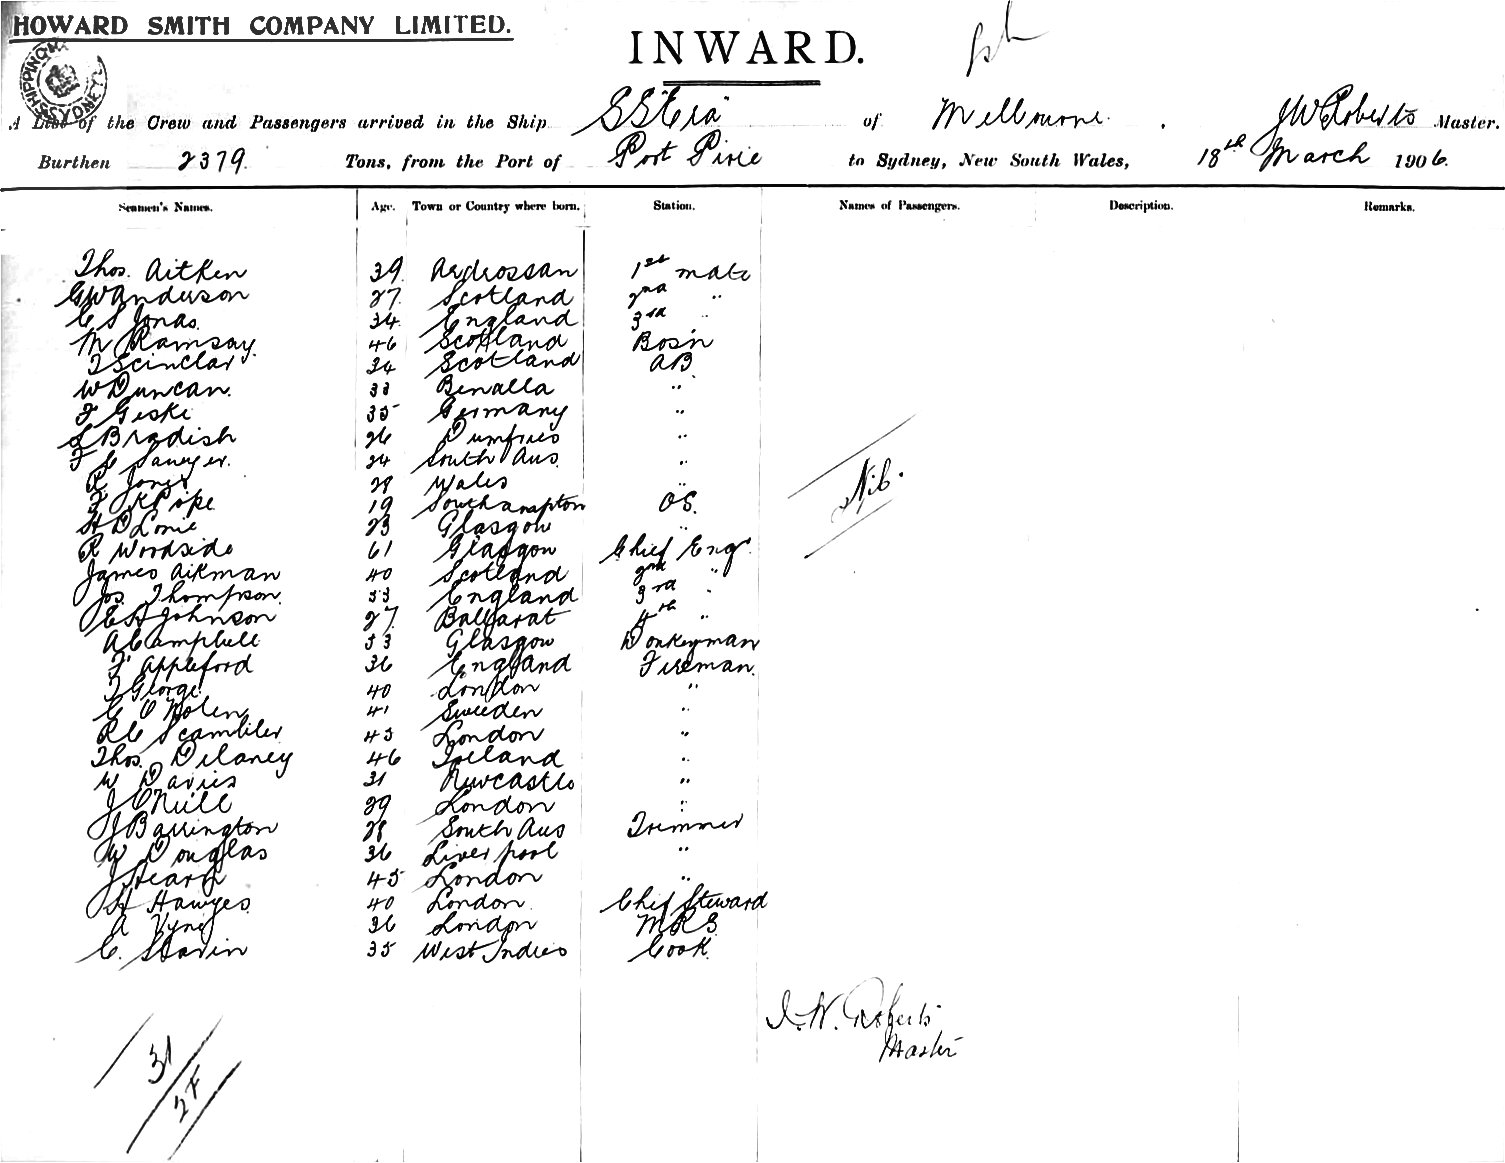 HOWARD SMITH COMPANY LIMITED.
INWARD.
SHIPPING MASTER SYDNEY
A List of the Crew and Passengers arrived in the Ship SS "Era" of Melbourne. J W Roberts Master.
Burthen 2379 Tons, from the Port of Port Pirie to Sydney, New South Wales, 18th March 1906.
Seamen's Names. Age. Town or Country where born. Station. Names of Passengers. Description. Remarks.
Thos. Aitken 39 Ardrossan 1st mate
G W Anderson 27 Scotland 2nd "
C S Jonas. 34 England 3rd "
M Ramsay. 46 Scotland Bos'n
T Scinclar 34 Scotland AB
W Duncan. 33 Benalla "
F Geske 35 Germany "
S Bradish 26 Dumfries "
F C Sawyer. 24 South Aus. "
R Jones 28 Wales "
F K Pope 19 Southampton OS.
H D Lonie 23 Glasgow "
R Woodside 61 Glasgow Chief Engr.
James Aikman 40 Scotland 2nd "
Jos. Thompson. 33 England 3rd "
C H Johnson 27 Ballarat 4th "
A Campbell 53 Glasgow Donkeyman
F Appleford 36 England Fireman.
T George 40 London "
C O Nolen 41 Sweden "
R C Scambler 43 London "
Thos. Delaney 46 Ireland "
W Davies 31 Newcastle "
J O'Neill 29 London "
J Barrington 28 South Aus Trimmer
W Douglas 36 Liverpool "
J Hearn 45 London "
H Hawyes 40 London. Chief Steward
A Vyne 36 London MRS
C. Slavin 35 West Indies Cook.
Nil.
J. W. Roberts
Master
31
2F